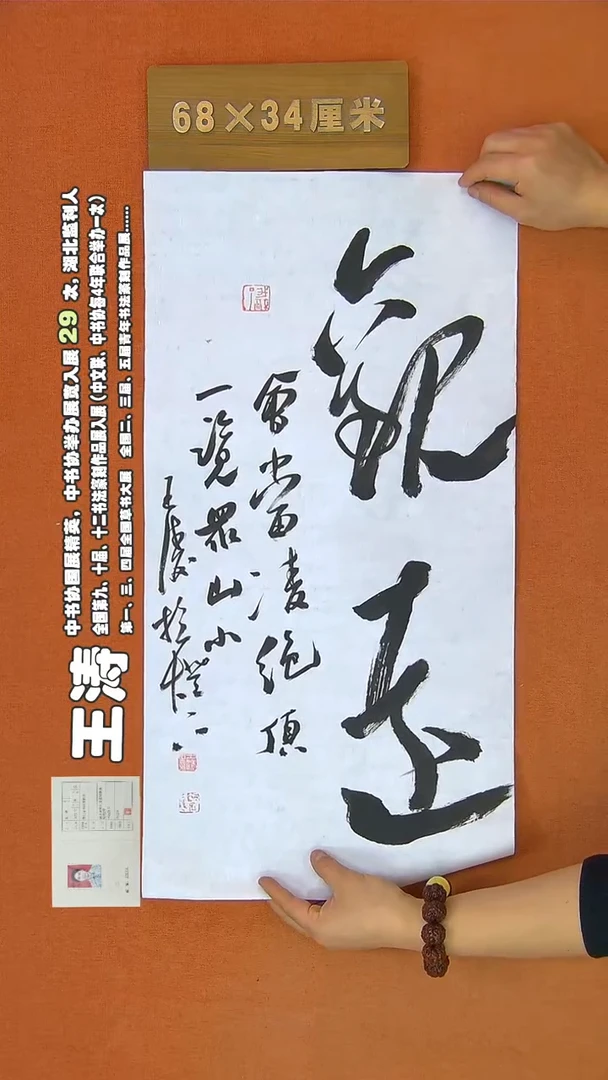 68×34厘米
观远
会当凌绝顶
一览众山小
王涛
中书协国展精英，中书协举办展赛入展29次，湖北监利人
全国第九、十届、十二书法篆刻作品展入展（中文联、中书协每4年联合举办一次）
第一、三、四届全国扇书大展 全国二、三届、五届青年书法篆刻作品展……